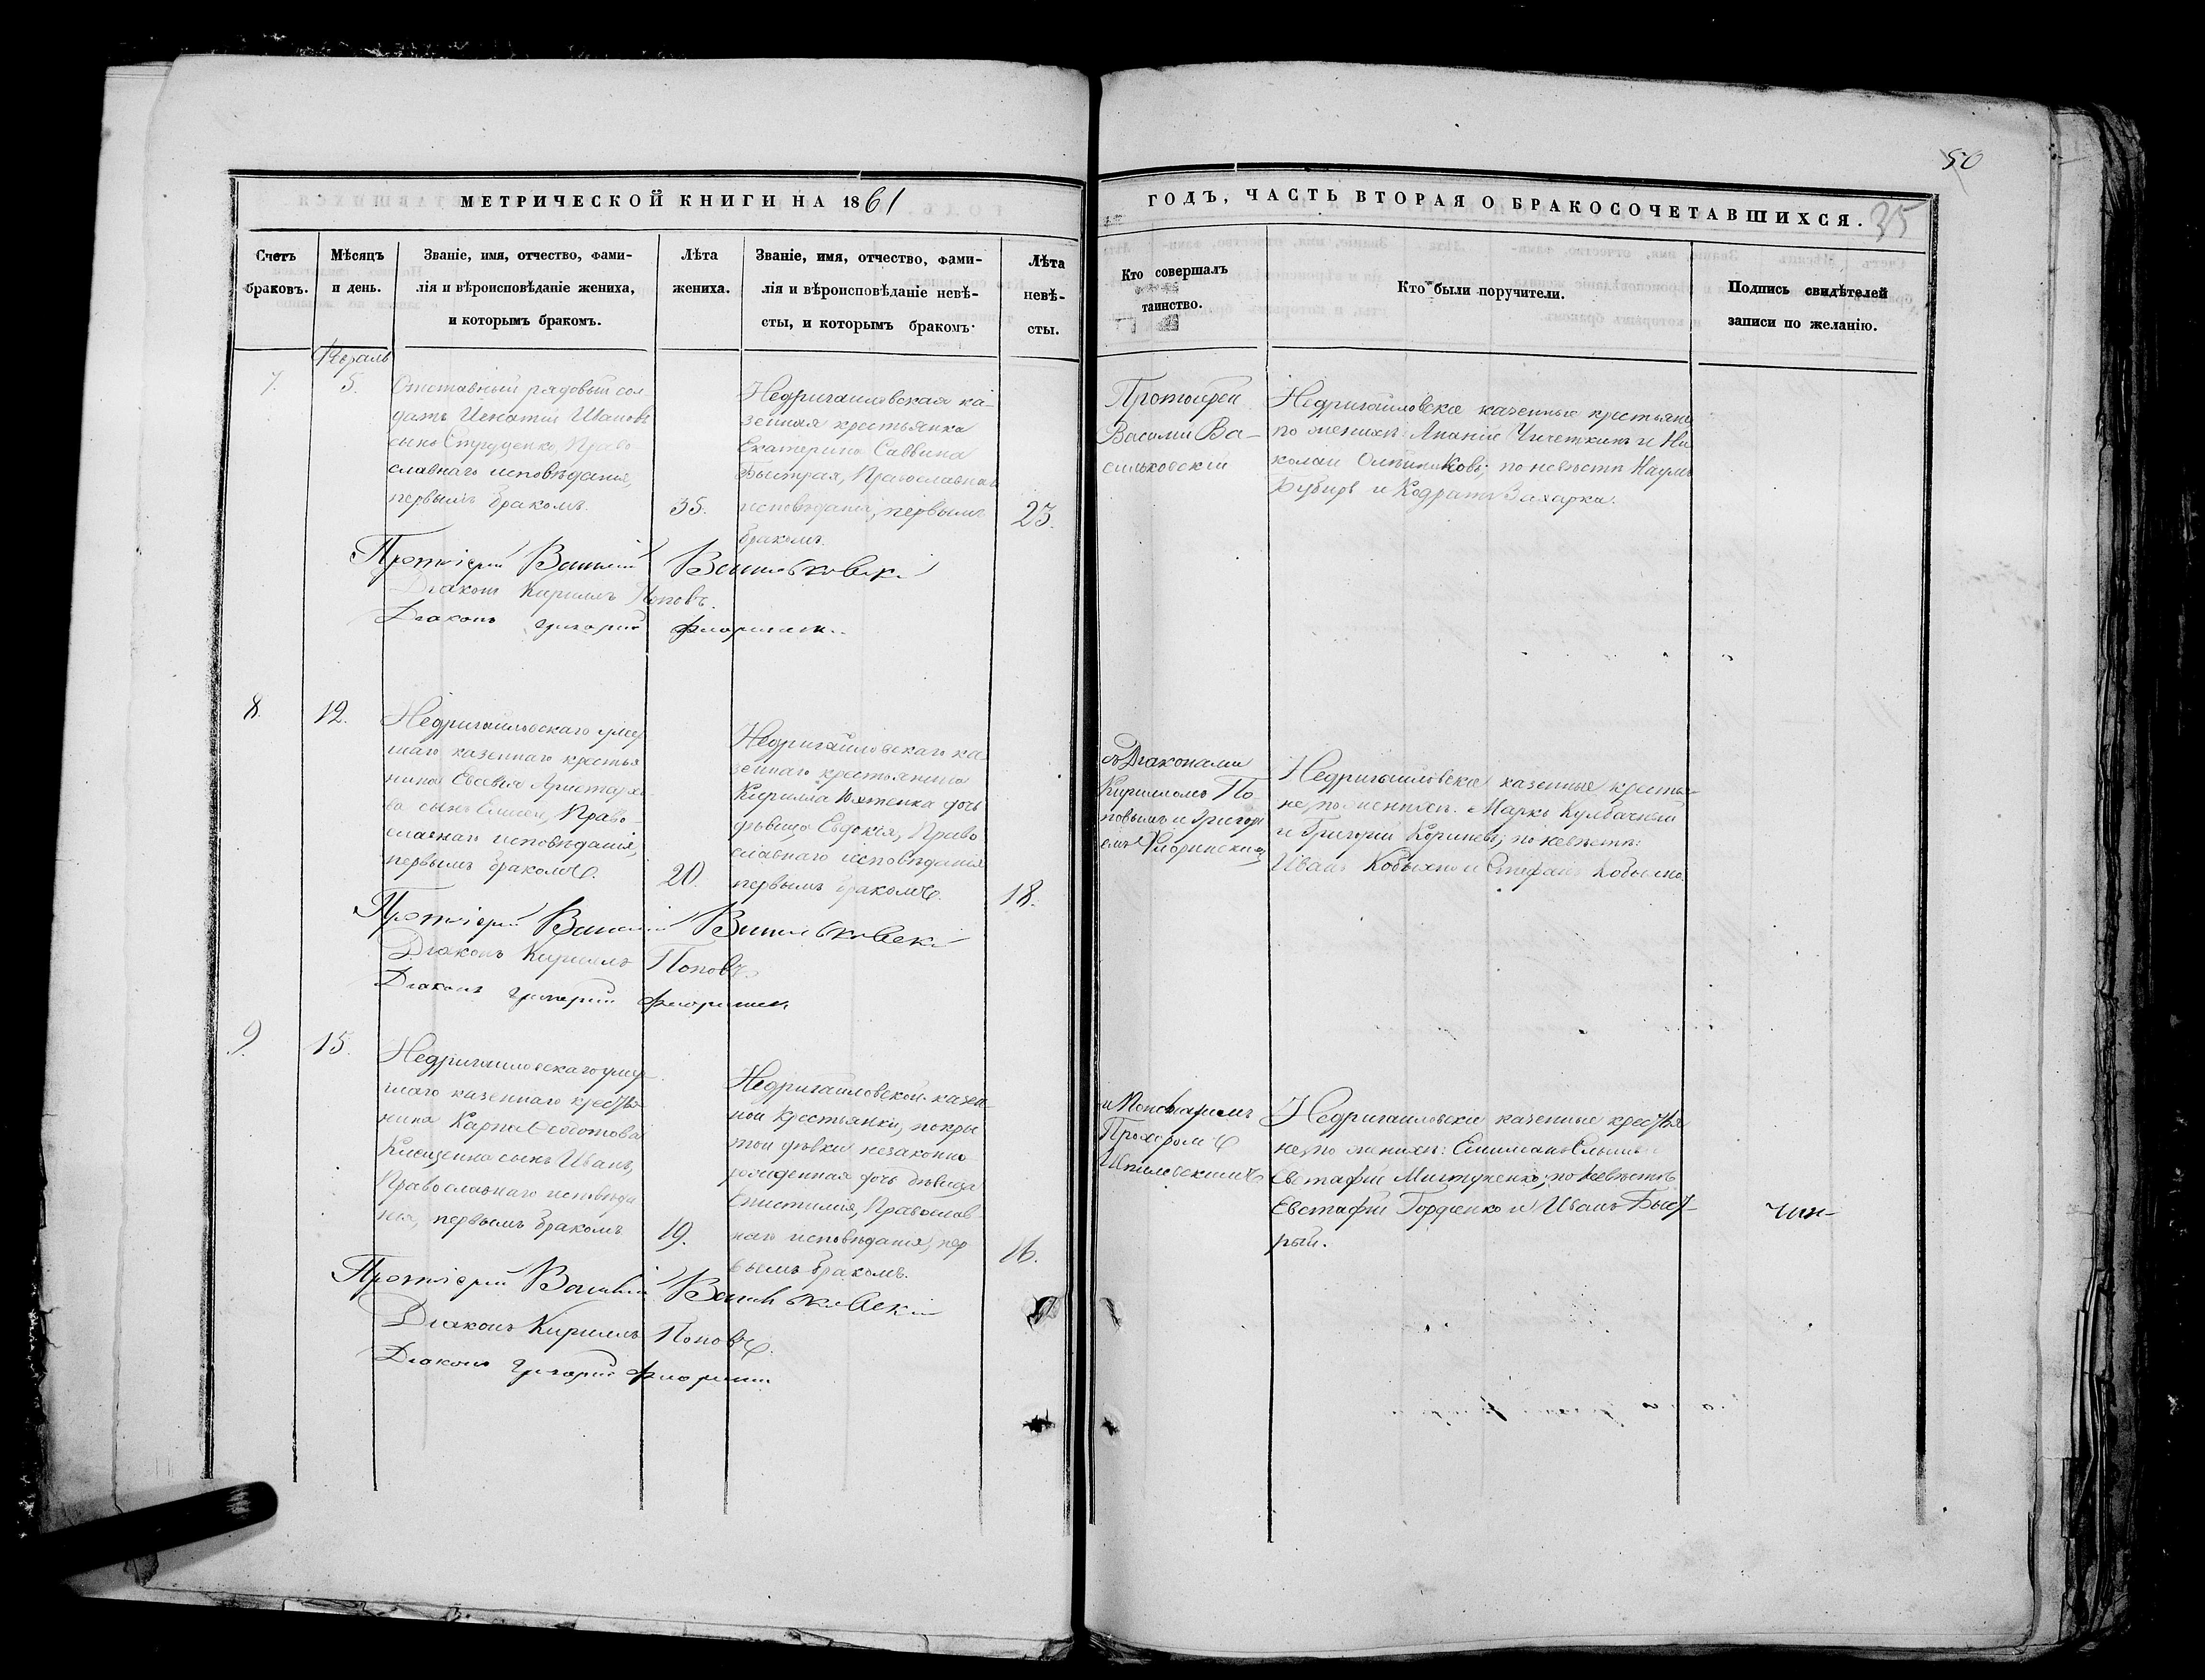 50
МЕТРИЧЕСКОЙ КНИГИ НА 1861
ГОДЪ, ЧАСТЬ ВТОРАЯ О БРАКОСОЧЕТАВШИХСЯ.
35
Счетъ
браковъ.
Мѣсяцъ
и день.
Званіе, имя, отчество, фами-
лія и вѣроисповѣданіе жениха,
и которымъ бракомъ.
Лѣта
жениха.
Званіе, имя, отчество, фами-
лія и вѣроисповѣданіе невѣ-
сты, и которымъ бракомъ.
Лѣта
невѣ-
сты.
Кто совершалъ
таинство.
Кто были поручители.
Подпись свидѣтелей
записи по желанію.
7.
5.
Отставный рядовый сол
датъ Игнатій Ивановъ
сынъ Право
славнаго исповѣданія,
первымъ бракомъ.
35.
Недригайловская ка-
зенная крестьянка
Екатерина Саввина
Быстрая, Православнаго
исповѣданія, первымъ
бракомъ.
23.
Протоіерей
Василій Ва-
сильковскій
Недригайловскіе казенные крестьяне
по женихѣ: Ананій и Ни
колай по невѣстѣ Наумъ
и Кодратъ Захарка.
Протоіерей Василій Васильковскій
Діаконъ Кириллъ Поповъ.
Діаконъ Григорій Флоринскій
8.
12.
Недригайловскаго умер
шаго казеннаго крестья
нина Евсевія Аристархо
ва сынъ Елисей, Право-
славнаго исповѣданія,
первымъ бракомъ.
20.
Недригайловскаго ка-
зеннаго крестьянина
Кирилла дочь
дѣвица Евдокія, Право
славнаго исповѣданія
первымъ бракомъ.
18.
съ Діаконами
Кирилломъ По-
повымъ и Григорі
емъ Флоринскимъ
Недригайловскіе казенные крестья-
не, по женихѣ: Марко Кулбачный
и Григорій Кориневъ; по невѣстѣ:
Иванъ и Стефанъ
Протоіерей Василій Васильковскій
Діаконъ Кириллъ Поповъ.
Діаконъ Григорій Флоринскій
9.
15.
Недригайловскаго умер
шаго казеннаго крестья
нина Карпа
сынъ Иванъ,
Православнаго исповѣда
нія, первымъ бракомъ
19.
Недригайловской казен
ной крестьянки, покры
той дѣвки незаконно
рожденная дочь дѣвица
Епистимія, Православ-
наго исповѣданія, пер
вымъ бракомъ.
16.
и Пономаремъ
Прохоромъ
Недригайловскіе казенные крестья
не, по женихѣ: Емиліанъ
Евстафій по невѣстѣ
Евстафій Гордіенко и Иванъ Быст-
рый.
Протоіерей Василій Васильковскій
Діаконъ Кириллъ Поповъ.
Діаконъ Григорій Флоринскій